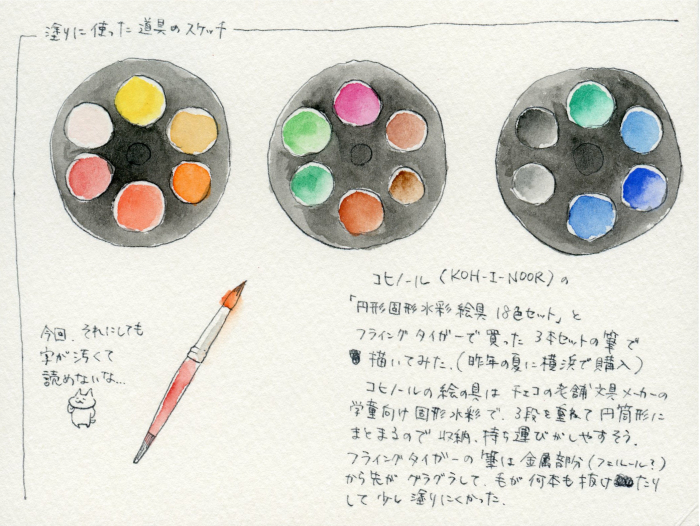 塗りに使った道具のスケッチ
コヒノール (KOH-I-NOOR) の
「円形固形水彩絵具 18色セット」と
フライングタイガーで買った 3本セットの筆で
描いてみた。(昨年の夏に横浜で購入)
コヒノールの絵の具は チェコの老舗文具メーカーの
学童向け固形水彩で、3段を重ねて円筒形に
まとまるので収納、持ち運びがしやすそう。
フライングタイガーの筆は金属部分(フェルール?)
から先がグラグラして、毛が何本も抜けたり
して少し塗りにくかった。
今回、それにしても
字が汚くて
読めないな…